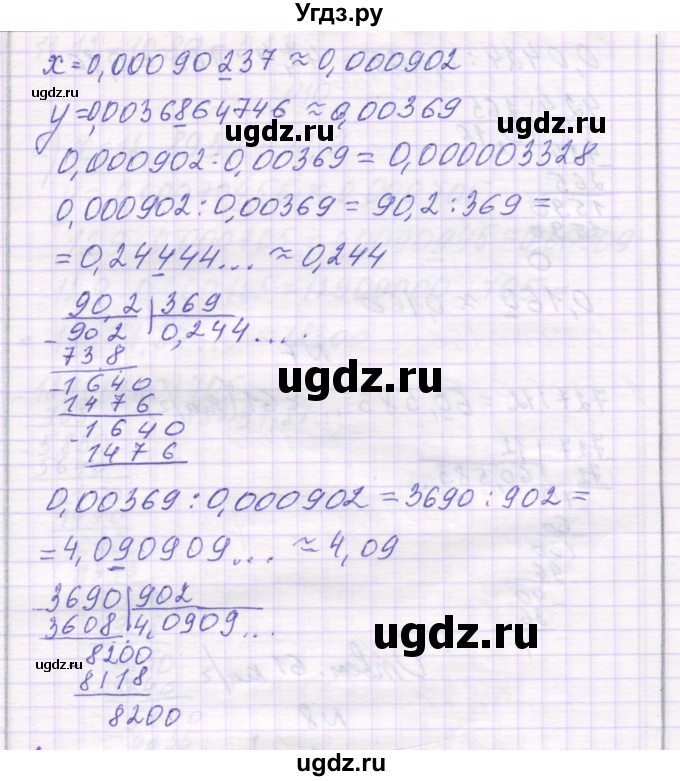 Угдз.ру
x=0,00090237≈0,000902
ugdz.ru
y=0,0036864746≈0,00369
ugdz.ru ugdz.ru
0,000902·0,00369=0,000003328
0,000902:0,00369=90,2:369=
ugdz.ru
=0,24444...≈0,244
90,2 369
-902 0,244....
ugdz.ru
73 8
-1640
1476
ugdz.ru
-1640
1476
0,00369:0,000902=3690:902=
ugdz.ru
=4,090909...≈4,09
3690 902
3608 4,0909...
ugdz.ru
ugdz.ru
8200
8118
ugdz.ru
8200
ugdz.ru